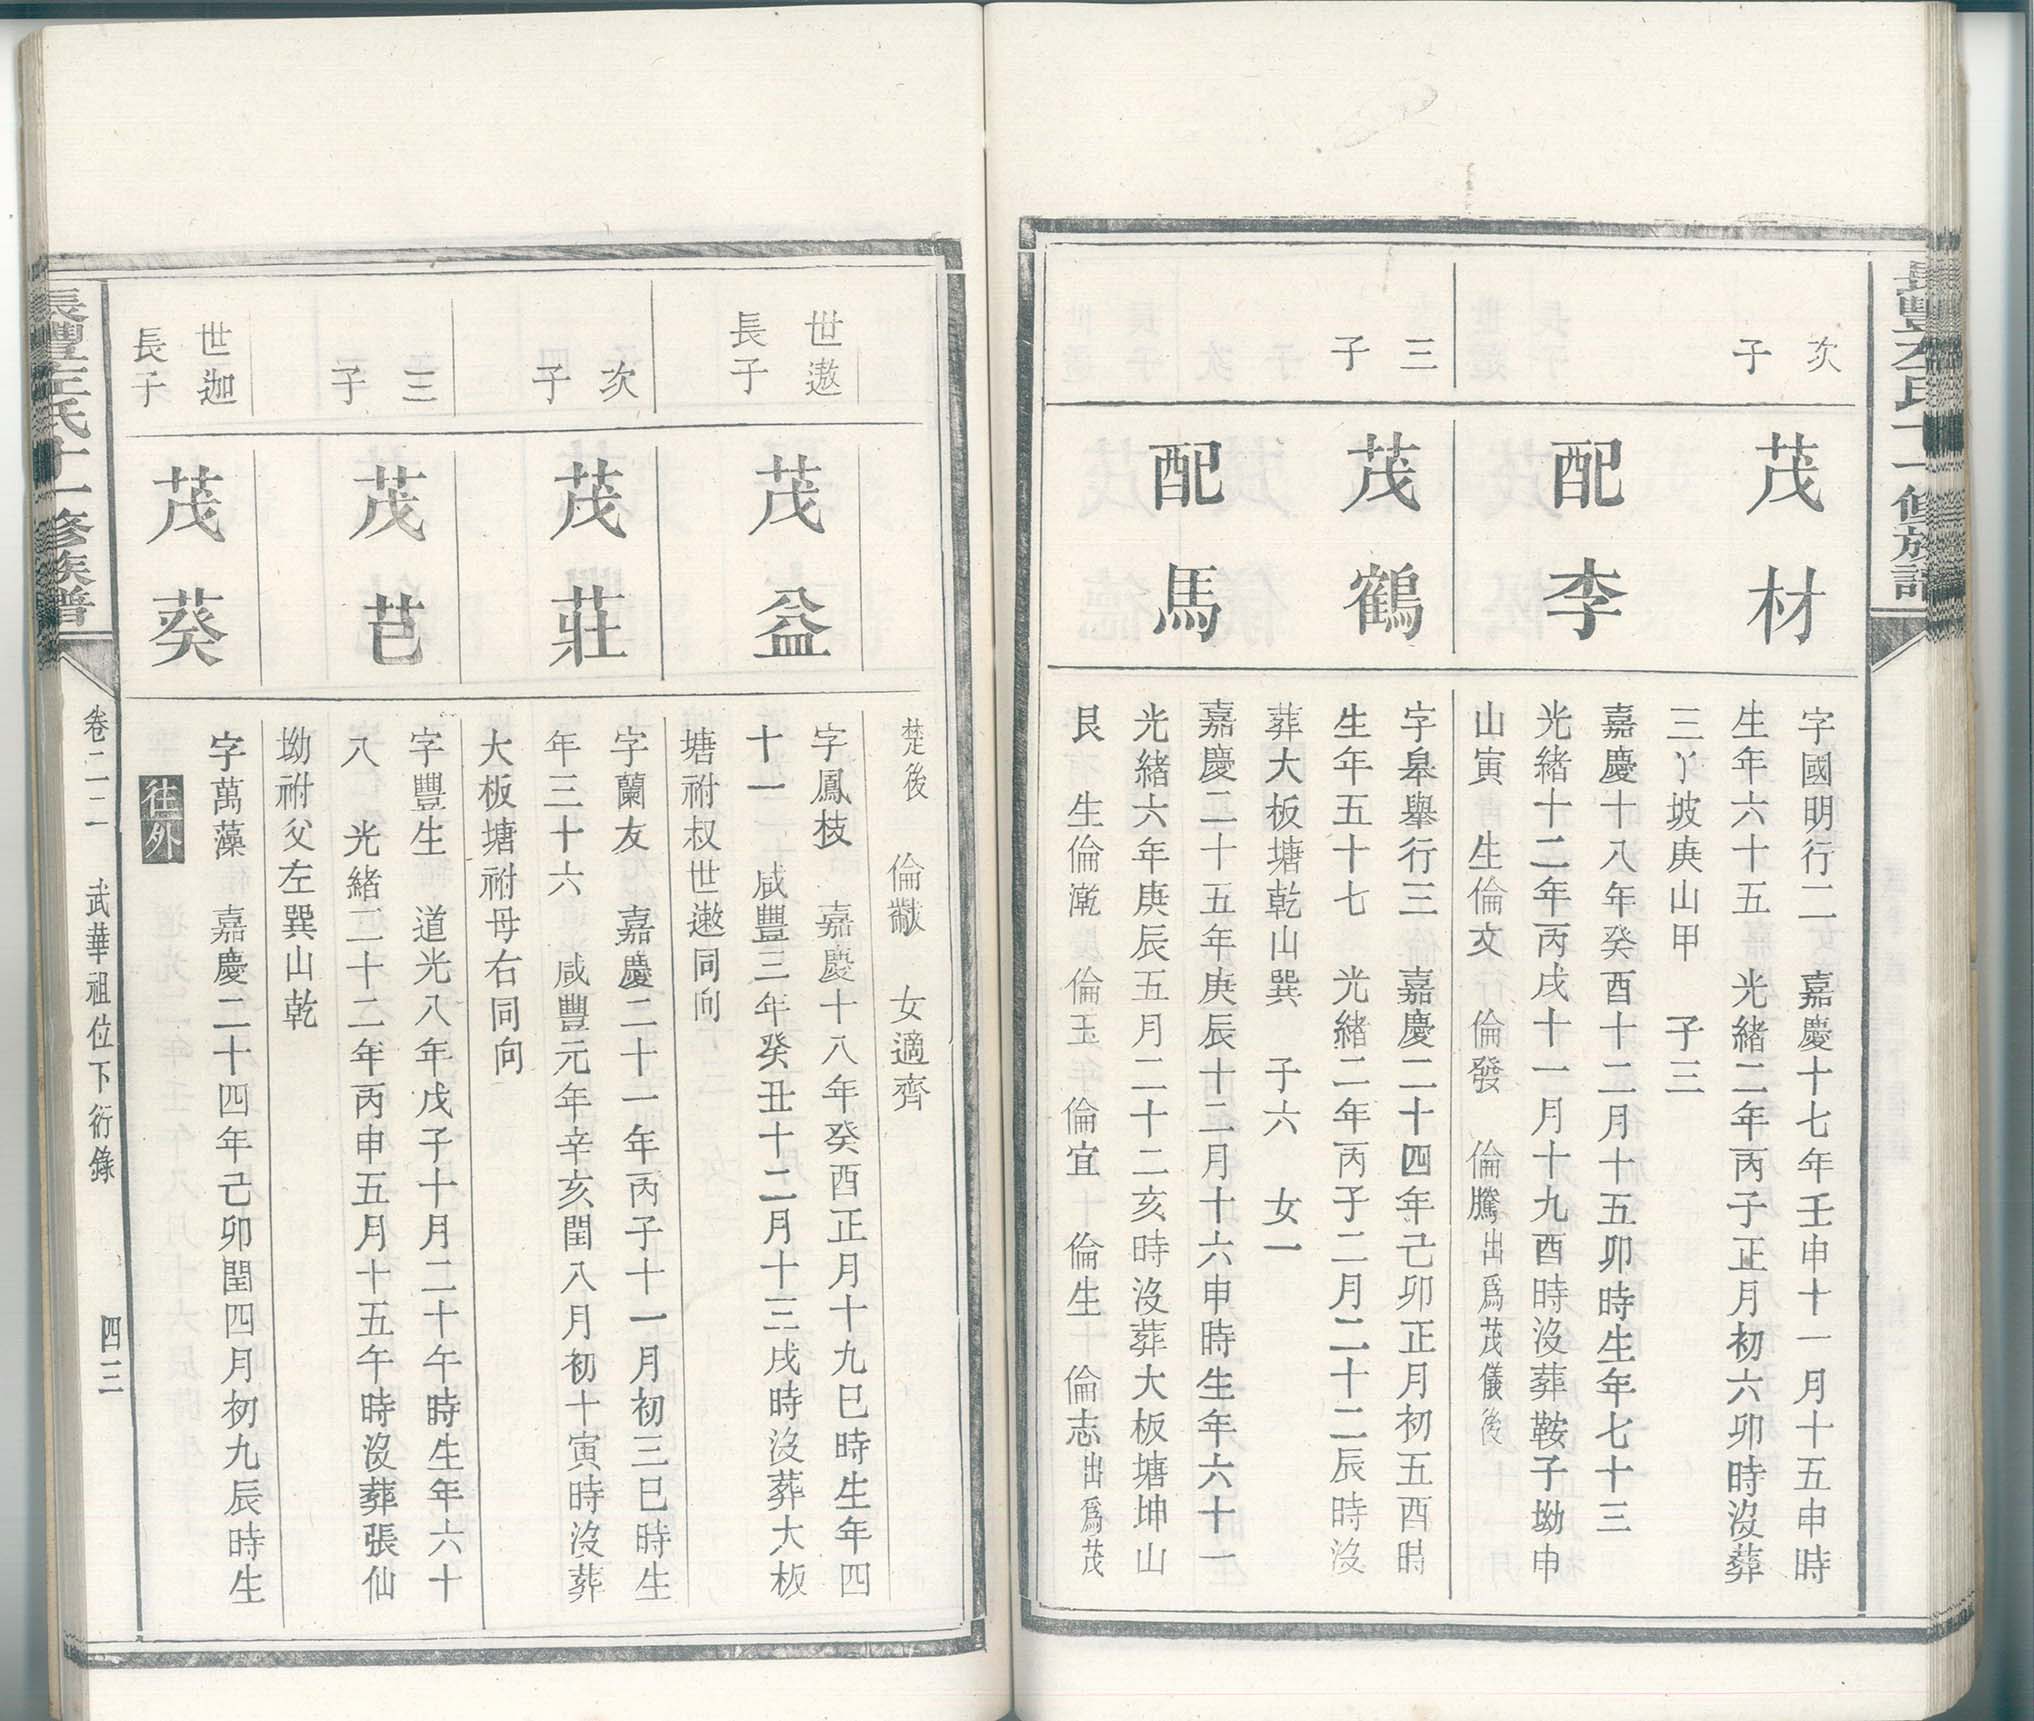 長豐左氏十一修族譜
次子
茂材
字國明行二 嘉慶十七年壬申十一月十五申時
生年六十五 光緒二年丙子正月初六卯時沒葬
三丫坡庚山甲 子三
配李
嘉慶十八年癸酉十二月十五卯時生年七十三
光緒十二年丙戌十一月十九酉時沒葬鞍子坳申
山寅 生倫文 倫發 倫騰出爲茂儀後
三子
茂鶴
字皋舉行三 嘉慶二十四年己卯正月初五酉時
生年五十七 光緒二年丙子二月二十二辰時沒
葬大板塘乾山巽 子六 女一
配馬
嘉慶二十五年庚辰十二月十六申時生年六十一
光緒六年庚辰五月二十二亥時沒葬大板塘坤山
艮 生倫漧 倫玉 倫宜 倫生 倫志出爲茂
楚後 倫黻 女適齊
世遨長子
茂益
字鳳枝 嘉慶十八年癸酉正月十九巳時生年四
十一 咸豐三年癸丑十二月十三戌時沒葬大板
塘祔叔世遨同向
次子
茂莊
字蘭友 嘉慶二十一年丙子十一月初三巳時生
年三十六 咸豐元年辛亥閏八月初十寅時沒葬
大板塘祔母右同向
三子
茂芑
字豐生 道光八年戊子十月二十午時生年六十
八 光緒二十二年丙申五月十五午時沒葬張仙
坳祔父左巽山乾
世迦長子
茂葵
字萬藻 嘉慶二十四年己卯閏四月初九辰時生
往外
長豐左氏十一修族譜
卷二二 武華祖位下衍錄 四三